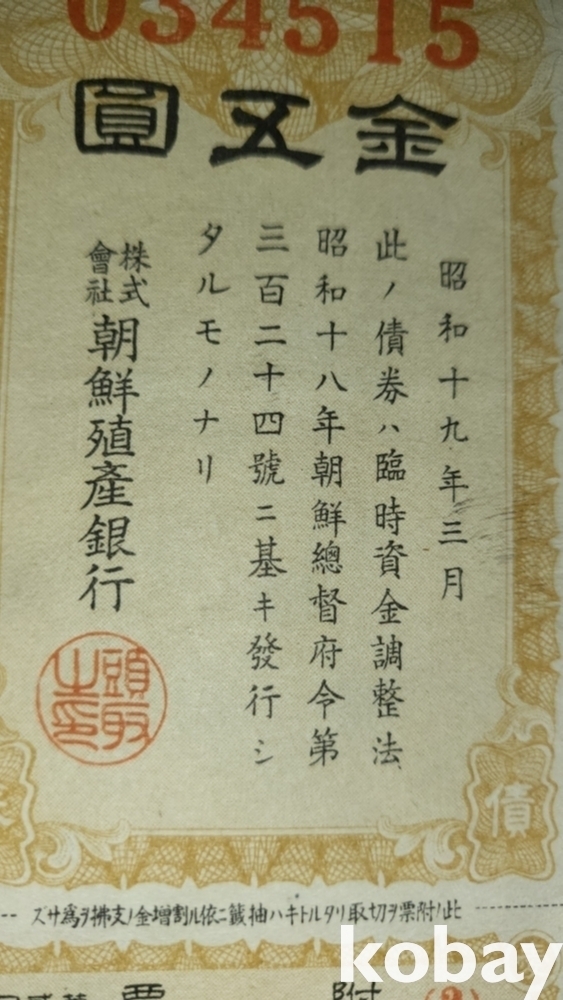 034515
金五圓
昭和十九年三月
此ノ債券ハ臨時資金調整法
昭和十八年朝鮮總督府令第
三百二十四號ニ基キ發行シ
タルモノナリ
株式
會社
朝鮮殖產銀行
頭取
之印
債
此ノ附票ヲ切取リタルトキハ抽籤ニ依ル割增金ノ支拂ヲ爲サズ
附票
kobay